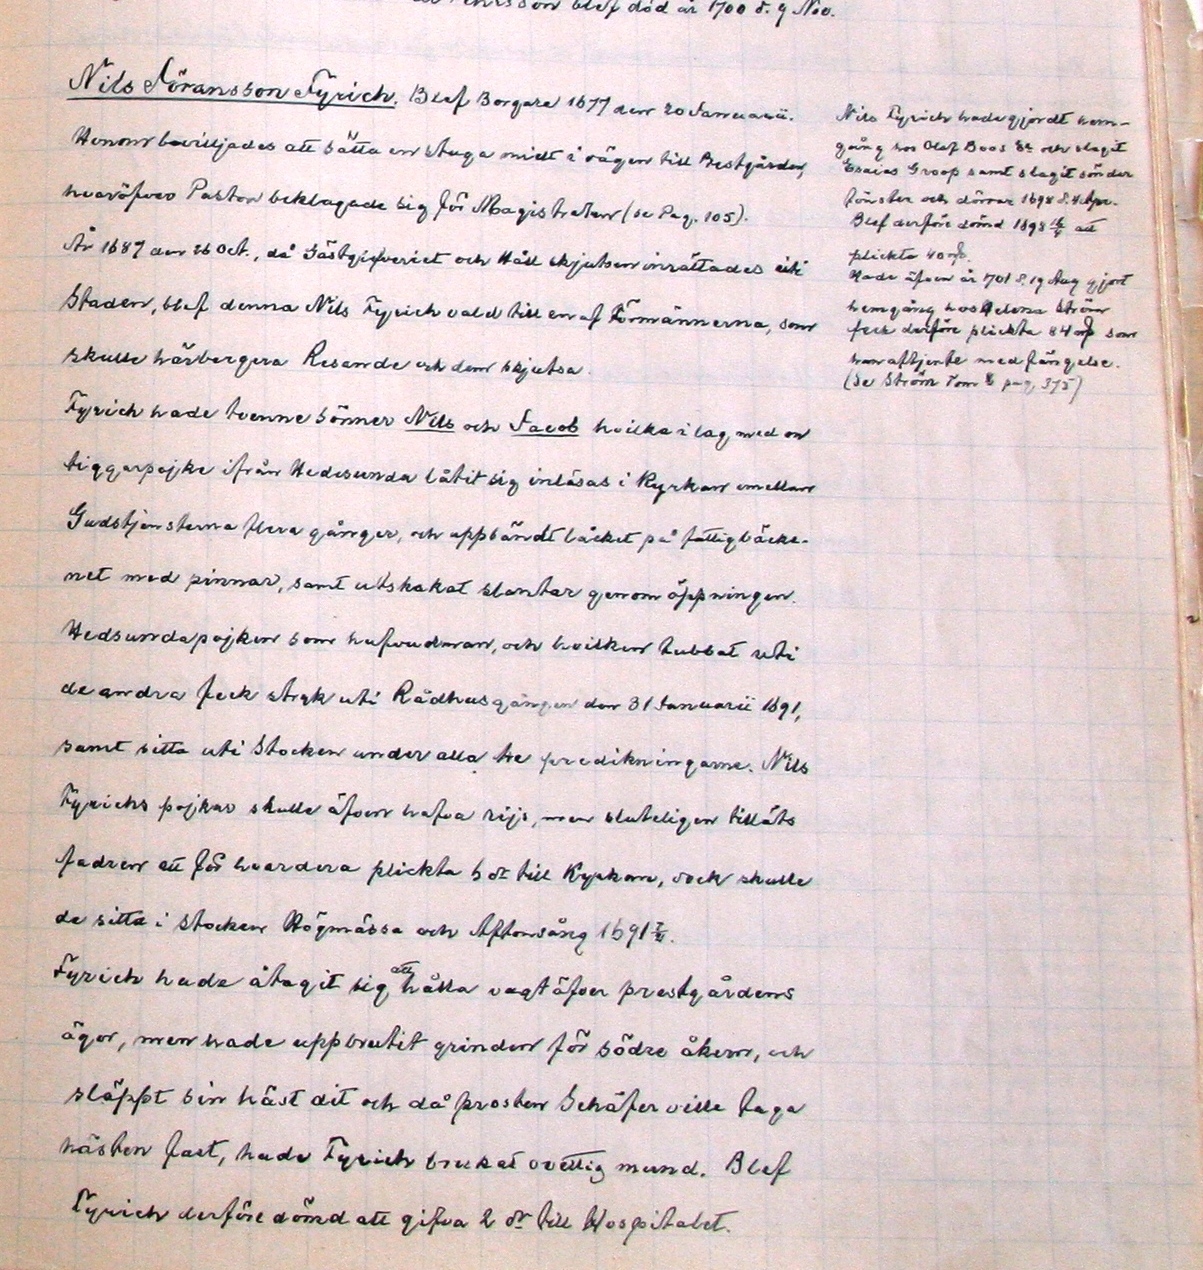 blef död år 1700 d. 9 Nov.
Nils Jöransson Tyrich. Blef Borgare 1677 den 20 Januarii.
Honom beviljades att sätta en stuga midt i vägen till Prestgården,
hvaröfver Pastor beklagade sig för Magistraten (se Pag. 105).
År 1687 den 26 Oct., då Gästgifveriet och Håll skjutsen inrättades uti
Staden, blef denna Nils Tyrich vald till en af Förmännerna, som
skulle härbergera Resande och dem skjutsa.
Tyrich hade tvenne söner Nils och Jacob hvilka i lag med en
tiggarpojke ifrån Hedesunda låtit sig inläsas i Kyrkan emellan
Gudstjensterna flera gånger, och uppbändt låcket på fattigbäcke-
net med pinnar, samt utskakat slantar genom öppningen.
Hedsundapojken som hufvudman, och hvilken lubbat uti
de andra feck stryk uti Rådhusgången den 31 Januarii 1691,
samt sitta uti Stocken under alla tre predikningarne. Nils
Tyrichs pojkar skulle äfven hafva rijs, men sluteligen tilläts
fadren att för hvardera plickta 5 dr till Kyrkan, dock skulle
de sitta i stocken Högmässa och Aftonsång 1691
Tyrich hade åtagit sig att hålla vagt äfver prestgårdens
ägor, men hade uppbrutit grinden för södre åkern, och
släppt sin häst dit och då prosten Schäfer ville taga
hästen fast, hade Tyrich brukat ovettig mund. Blef
Tyrich derföre dömd att gifva 2 dr till Hospitalet.
Nils Tyrich hade gjordt hem-
gång hos Olof Boos och slagit
Esaias Groop samt slagit sönder
fönster och dörrar 1698 d.
Blef derföre dömd 1698 att
plickta 40
Hade äfven år 1701 d. 19 Aug gjort
hemgång hos Helena Ström
feck derföre plickta 84 som
han aftjente med fängelse.
(Se Ström Tom pag. 375)